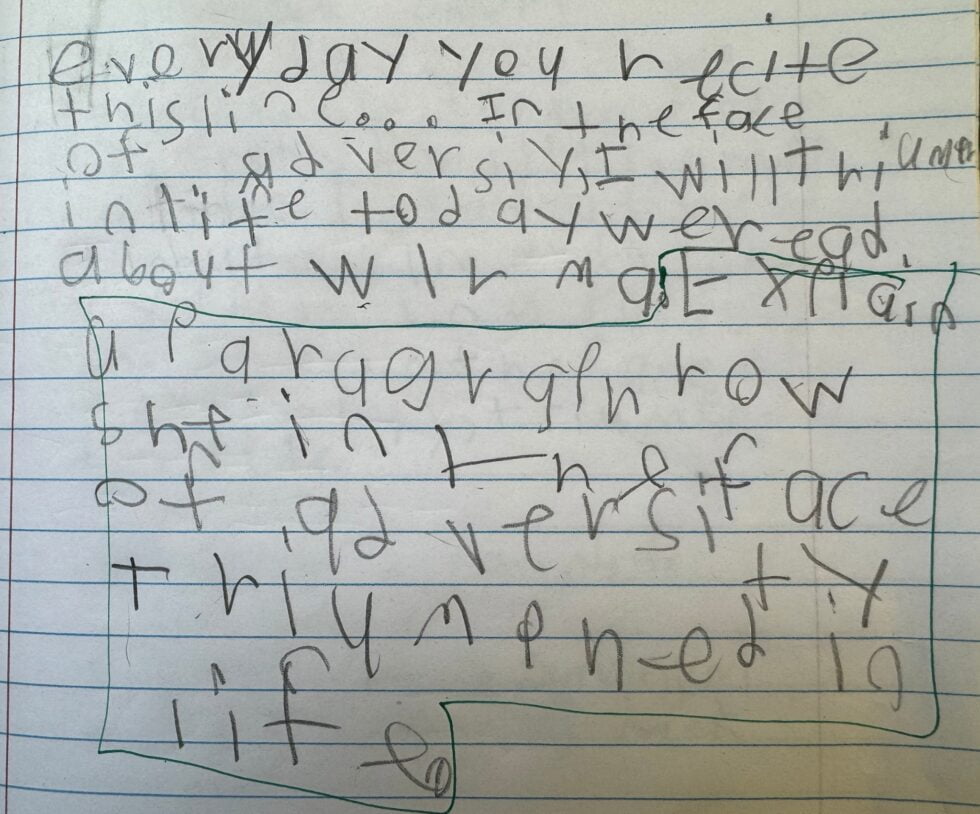 everyday you recite
this line... In the face
of adversiy, I will thriumph
in life today we read
about Wilma. Explain
in a paragraph how
she in the face
of adversity
triumphed in
life.